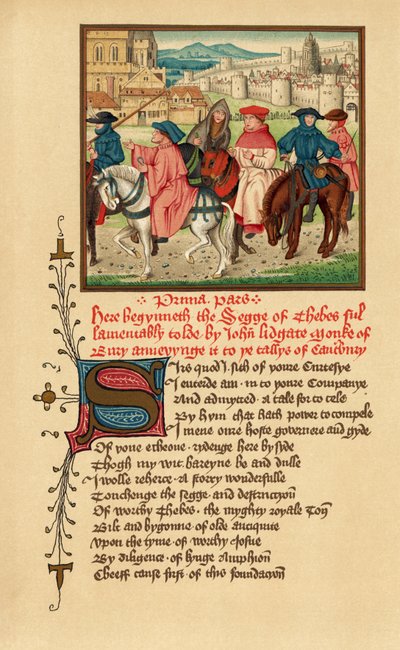 Prima pars
Here begynneth the Segge of Thebes ful
lamentably tolde by John lidgate Monke of
Bury annexynge it to ye tallys of Canterbury
Sirs quod I sith of youre Curtesye
I entrede am in to youre Companye
And admytted a tale for to tele
By hym that hath power to compele
I mene oure hoste governere and gyde
Of yone echeone rydenge here by syde
Thogh my wit bareyne be and dulle
I wolle reherce A story wonderfulle
Touchenge the segge and destruccyon
Of worthy Thebes the myghty royale Ton
Bilt and bygonne of olde antiquite
Upon the tyme of worthy Josue
By diligence of kynge Amphion
Cheeff cause first of this foundacyon